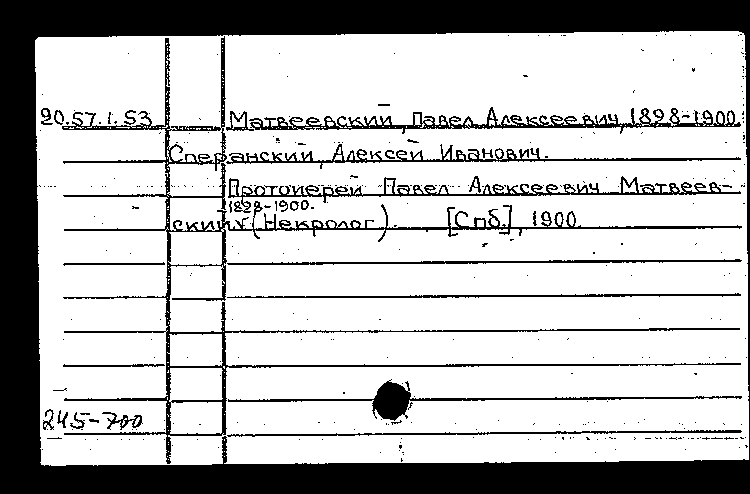 20.57.1.53 Матвеевский, Павел Алексеевич, 1828-1900.
Сперанский, Алексей Иванович.
Протоиерей Павел Алексеевич Матвеев-
1828-1900.
ский v (Некролог). [Спб.], 1900.
245-700